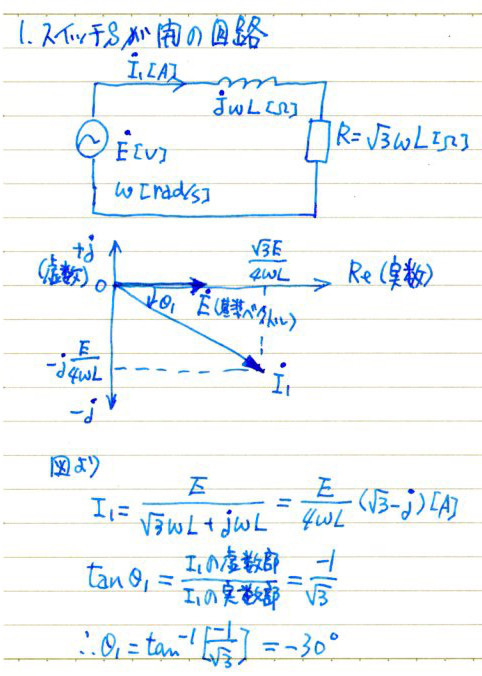 1. スイッチSが開の回路
İ₁[A]
jωL[Ω]
Ė[V]
R=√3ωL[Ω]
ω[rad/s]
+j
(虚数)
√3E/4ωL
0
θ₁
Ė(基準ベクトル)
Re(実数)
-j E/4ωL
İ₁
-j
図より
I₁ = E/(√3ωL+jωL) = E/4ωL (√3-j) [A]
tanθ₁ = I₁の虚数部/I₁の実数部 = -1/√3
∴θ₁ = tan⁻¹[-1/√3] = -30°